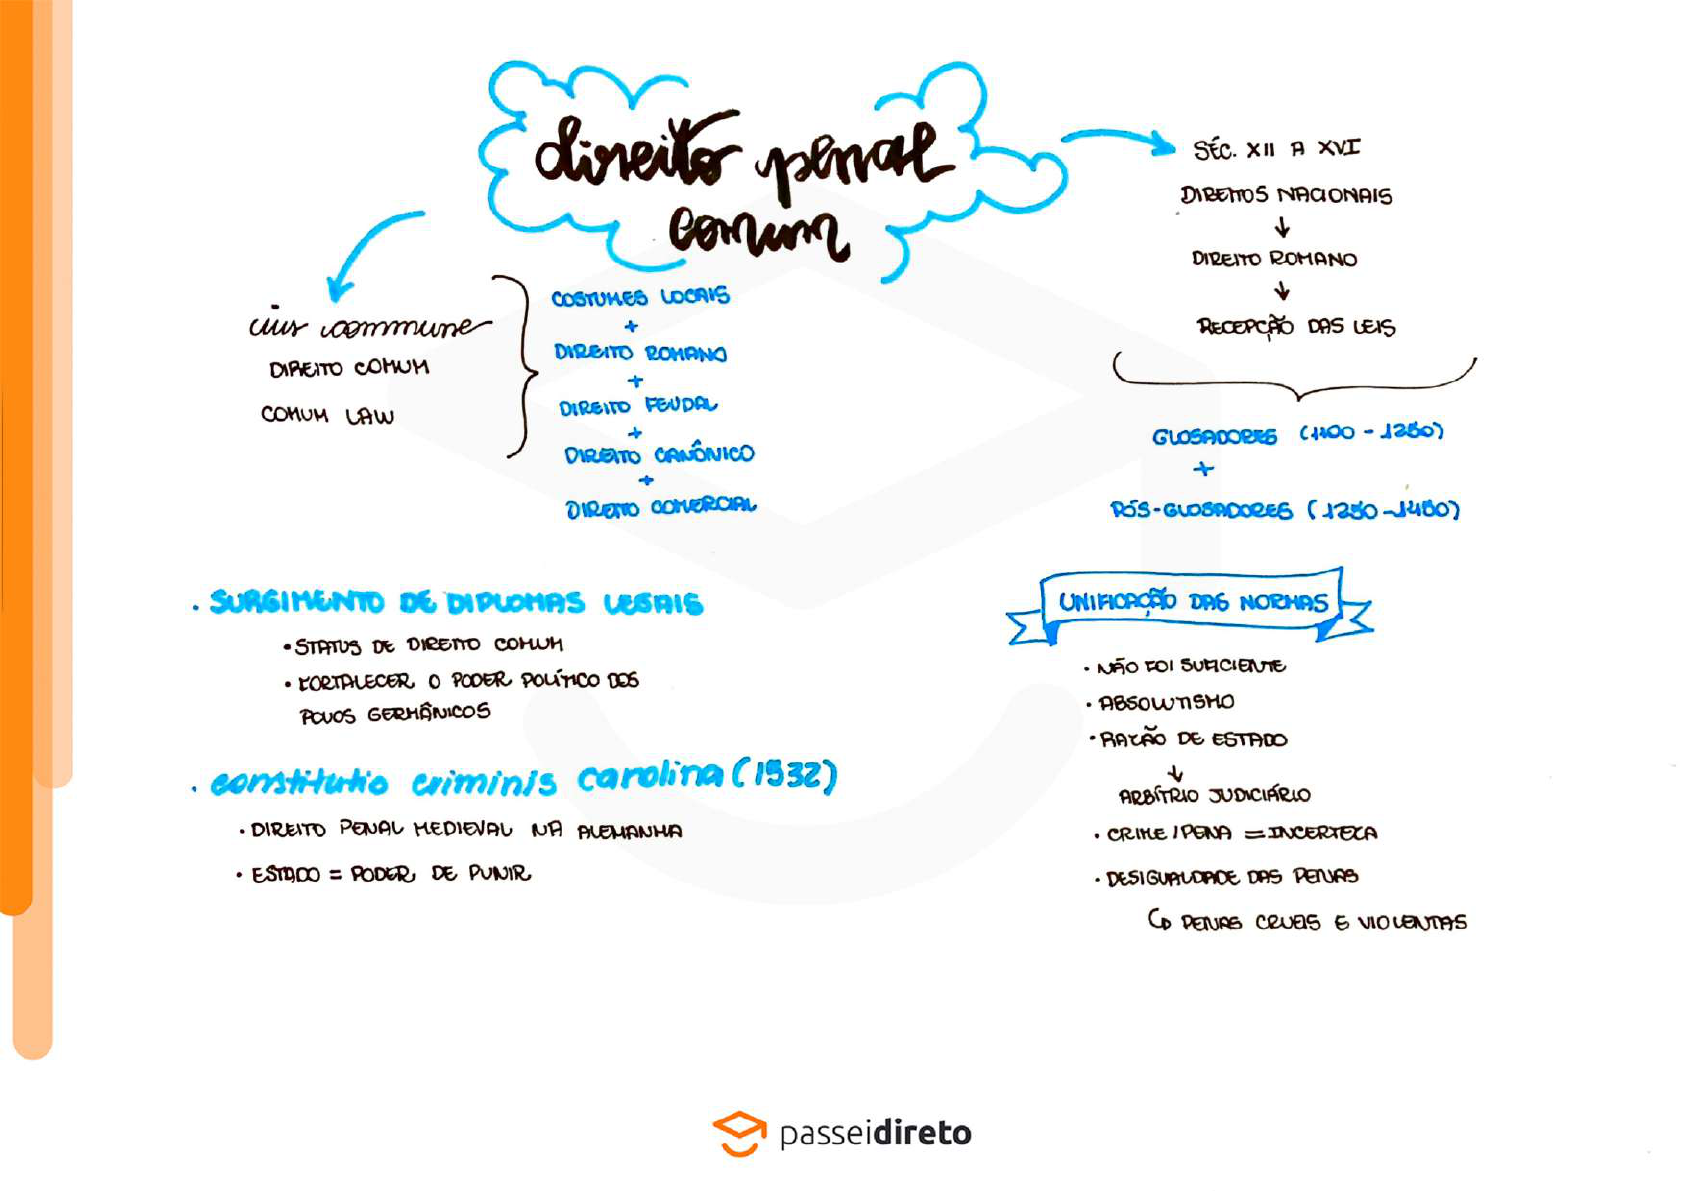 direito penal
comum
ius commune
DIREITO COMUM
COMUM LAW
COSTUMES LOCAIS
+
DIREITO ROMANO
+
DIREITO FEUDAL
+
DIREITO CANÔNICO
+
DIREITO COMERCIAL
SÉC. XII A XVI
DIREITOS NACIONAIS
↓
DIREITO ROMANO
↓
RECEPÇÃO DAS LEIS
GLOSADORES (1100 - 1250)
+
PÓS-GLOSADORES (1250-1450)
. SURGIMENTO DE DIPLOMAS LEGAIS
• STATUS DE DIREITO COMUM
• FORTALECER O PODER POLÍTICO DOS
POVOS GERMÂNICOS
. constitutio criminis carolina (1532)
• DIREITO PENAL MEDIEVAL NA ALEMANHA
• ESTADO = PODER DE PUNIR
UNIFICAÇÃO DAS NORMAS
• NÃO FOI SUFICIENTE
• ABSOLUTISMO
• RAZÃO DE ESTADO
↓
ARBÍTRIO JUDICIÁRIO
• CRIME / PENA = INCERTEZA
• DESIGUALDADE DAS PENAS
↳ PENAS CRUEIS E VIOLENTAS
passeidireto